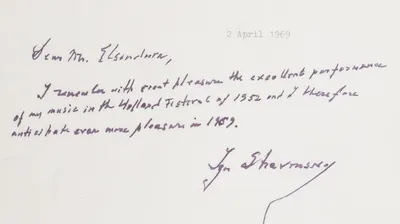 2 April 1969
Dear Mr. Elsendoorn,
I remember with great pleasure the excellent performance
of my music in the Holland Festival of 1952 and I therefore
anticipate even more pleasure in 1969.
Igor Stravinsky